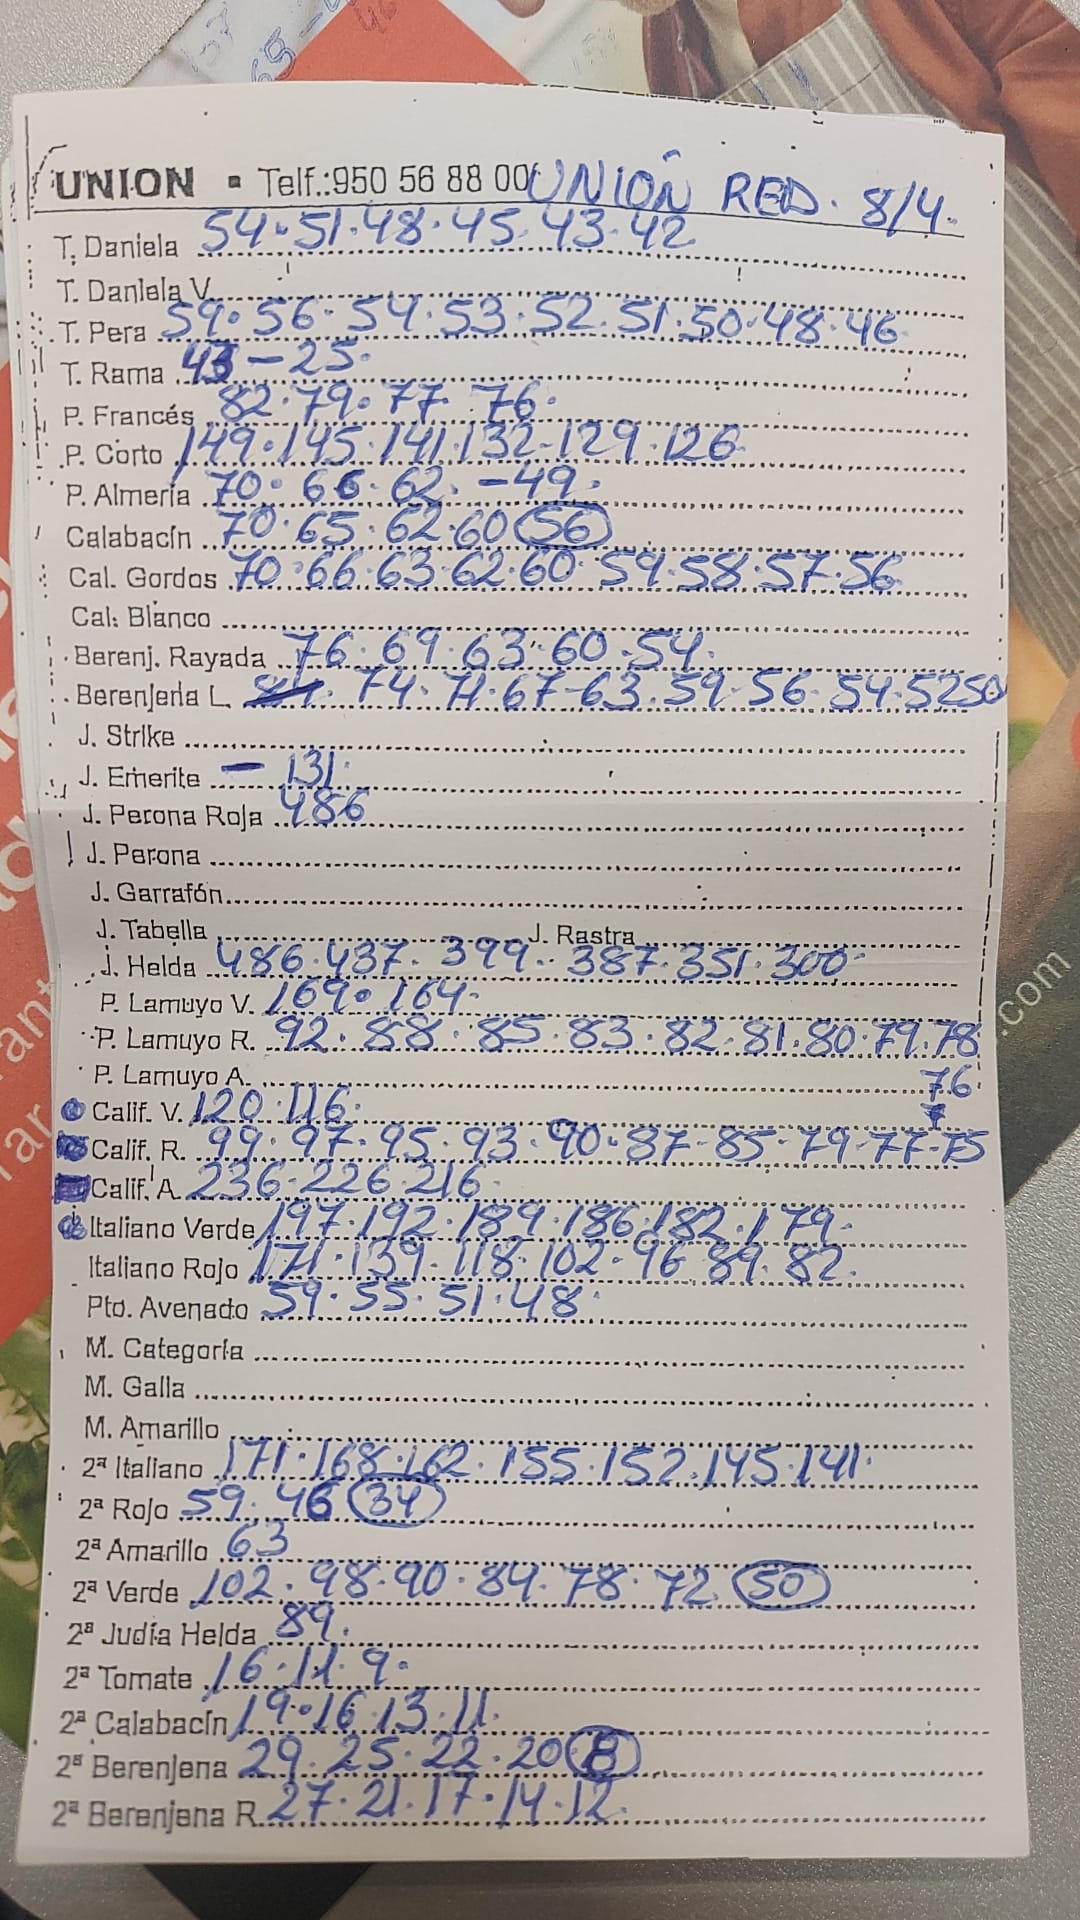 UNION ▪ Telf.:950 56 88 00 UNION RED. 8/4.
T. Daniela 54.51.48.45.43.42
T. Daniela V.
T. Pera 59.56.54.53.52.51.50.48.46
T. Rama 43-25.
P. Francés 82.79.77.76.
P. Corto 149.145.141.132-129.126
P. Almería 70.66.62.-49.
Calabacín 70.65.62.60 56
Cal. Gordos 70.66.63.62.60.59.58.57.56
Cal. Blanco
Berenj. Rayada 76.69.63.60.54.
Berenjena L. 74.71.67-63.59-56-54.52 50
J. Strike
J. Emerite - 131.
J. Perona Roja 486
J. Perona
J. Garrafón
J. Tabella J. Rastra
J. Helda 486.437.399.387.351.300-
P. Lamuyo V. 169.164-
P. Lamuyo R. 92.88.85.83.82.81.80.79.78
P. Lamuyo A. 76
Calif. V. 120.116.
Calif. R. 99.97.95.93.90.87-85-79-77-75
Calif. A. 236-226.216.
Italiano Verde 197.192.189.186.182.179.
Italiano Rojo 171.139.118.102-96.89.82.
Pto. Avenado 59.55.51.48.
M. Categoría
M. Galla
M. Amarillo
2ª Italiano 171.168.162.155.152.145.141.
2ª Rojo 59.46 34
2ª Amarillo 63
2ª Verde 102.98.90.84.78.72 50
2ª Judía Helda 89.
2ª Tomate 16.11.9.
2ª Calabacín 19.16.13.11.
2ª Berenjena 29.25.22.20
2ª Berenjena R. 27.21.17.14.12.
.com